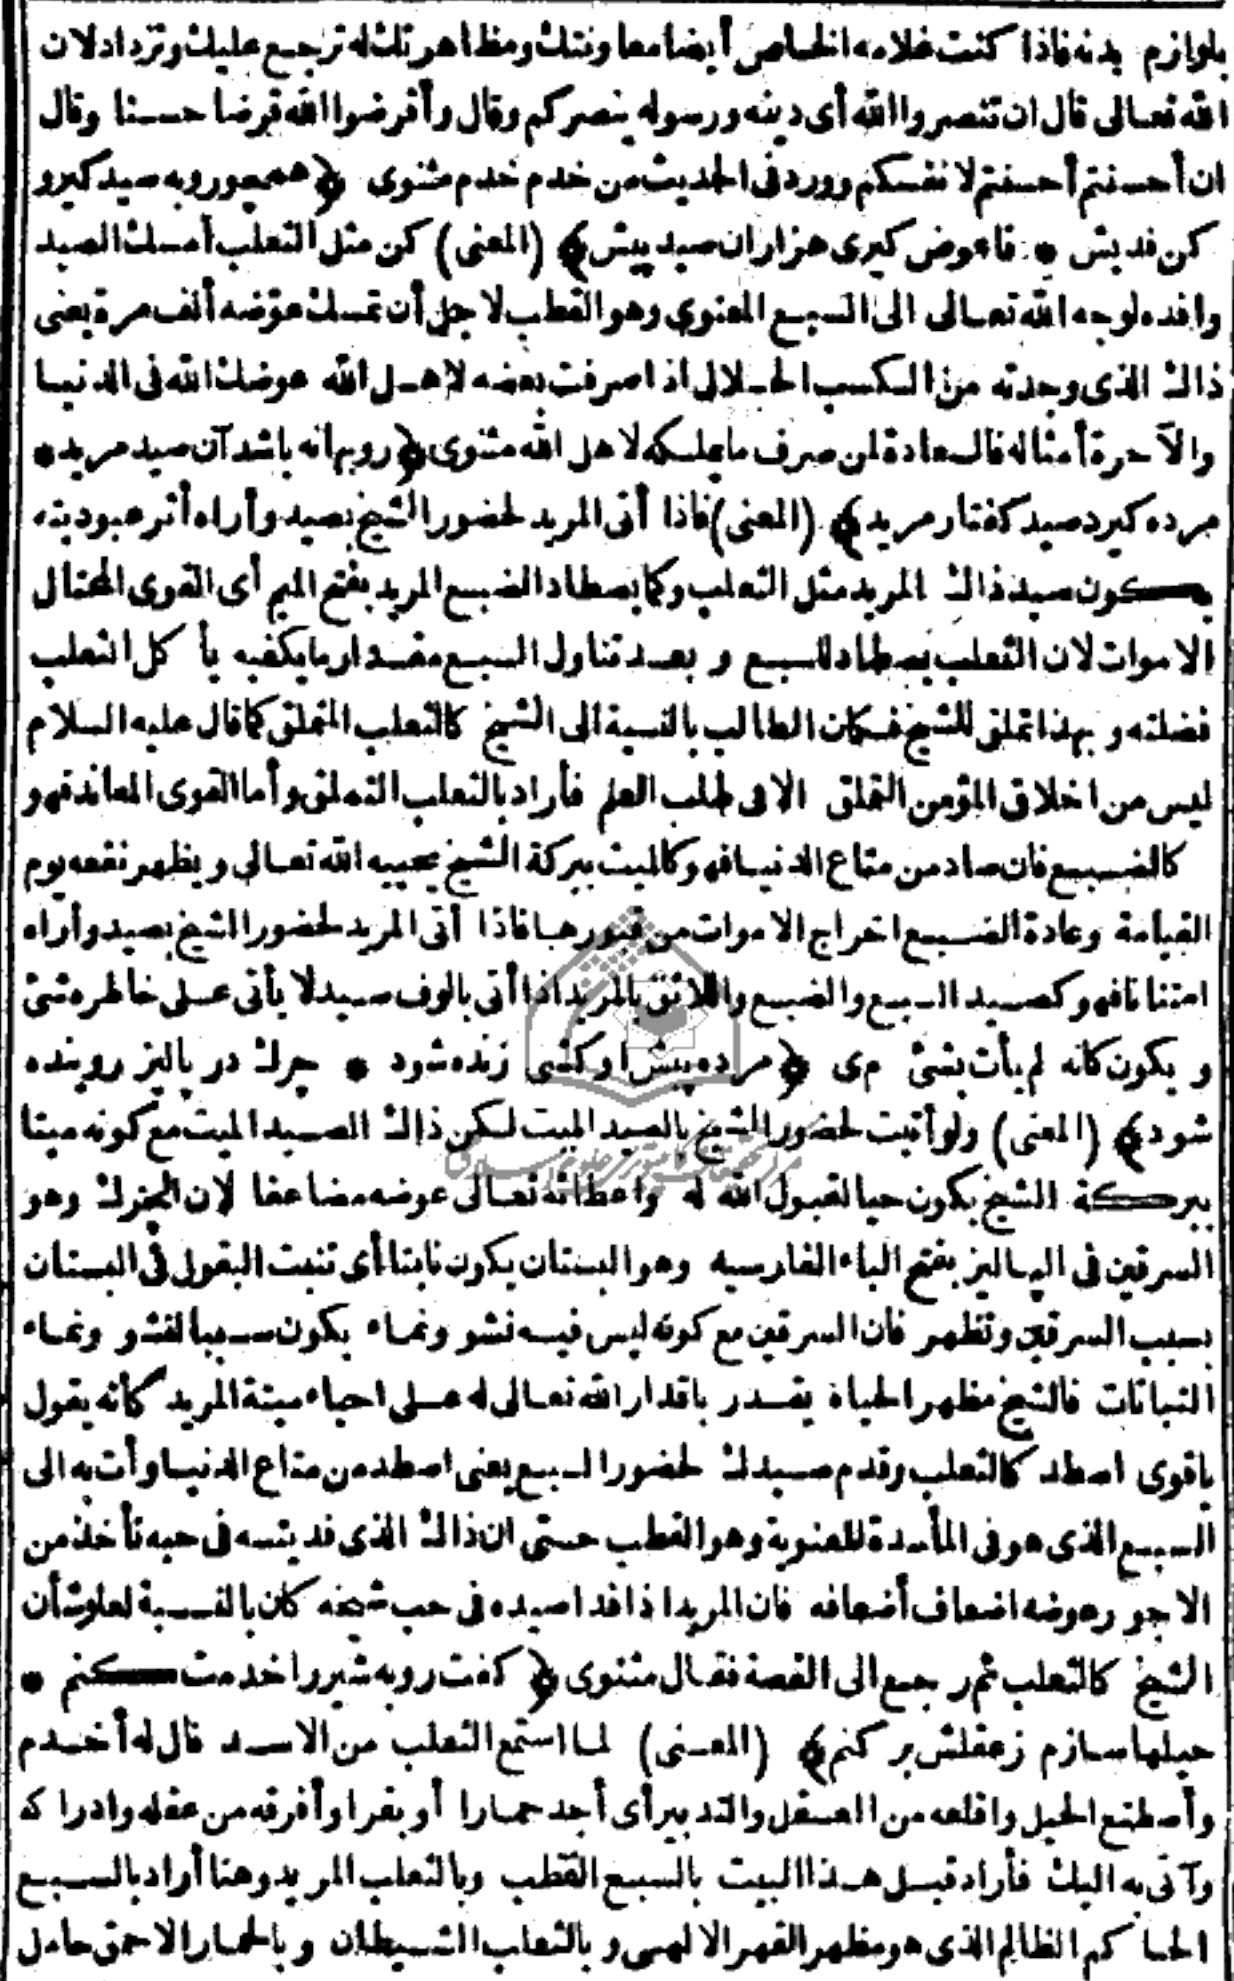 بلوازم بدنه فاذا كنت غلامه الخاص أيضا معاونتك ومظاهرتك له ترجع عليك وتزداد لان
الله تعالى قال ان تنصروا الله أى دينه ورسوله ينصركم وقال وأقرضوا الله قرضا حسنا وقال
ان أحسنتم أحسنتم لانفسكم وورد فى الحديث من خدم خدم مثنوى ﴿ همچو روبه صيد كير و
كن فديش * تا عوض كيرى هزاران صيد پيش ﴾ (المعنى) كن مثل الثعلب أمسك الصيد
وافده لوجه الله تعالى الى السبع المعنوى وهو القطب لاجل أن تمسك عوضه ألف مرة يعنى
ذاك الذى وجدته من الكسب الحلال اذا صرفت بعضه لاهل الله عوضك الله فى الدنيا
والآخرة أمثاله فالسعادة لمن صرف ما يملكه لاهل الله مثنوى ﴿ روبهانه باشد آن صيد مريد *
مرده كيرد صيد كفتار مريد ﴾ (المعنى) فاذا أتى المريد لحضور الشيخ بصيد وأراه أثر عبوديته
يكون صيد ذاك المريد مثل الثعلب وكما يصطاد الضبع المريد بفتح الميم أى القوى المحتال
الاموات لان الثعلب يصطاد للسبع و بعد تناول السبع مقدار ما يكفيه يأ كل الثعلب
فضلته و بهذا تملق للشيخ فكان الطالب بالنسبة الى الشيخ كالثعلب المتملق كما قال عليه السلام
ليس من اخلاق المؤمن التملق الا فى طلب العلم فأراد بالثعلب التملق وأما القوى المعاند فهو
كالضبع فان صاد من متاع الدنيا فهو كالميت ببركة الشيخ يحييه الله تعالى و يظهر نفعه يوم
القيامة وعادة الضبع اخراج الاموات من قبورها فاذا أتى المريد لحضور الشيخ بصيد وأراه
امتنانا فهو كصيد السبع والضبع واللائق بالمريد اذا أتى بالوف صيد لا يأتى على خاطره شئ
و يكون كانه لم يأت بشئ مى ﴿ مرده پيش او كشى زنده شود * چرك در پاليز روينده
شود ﴾ (المعنى) ولو أتيت لحضور الشيخ بالصيد الميت لكن ذاك الصيد الميت مع كونه ميتا
ببركة الشيخ يكون حيا لقبول الله له واعطائه تعالى عوضه مضاعفا لان الچرك وهو
السرقين فى الپاليز بفتح الباء الفارسيه وهو البستان يكون نابتا أى تنبت البقول فى البستان
بسبب السرقين وتظهر فان السرقين مع كونه ليس فيه نشو ونماء يكون سببا لنشو ونماء
النباتات فالشيخ مظهر الحياة يقدر باقدار الله تعالى له على احياء ميتة المريد كأنه يقول
ياقوى اصطد كالثعلب وقدم صيدك لحضور السبع يعنى اصطد من متاع الدنيا وأت به الى
السبع الذى هو فى المأسدة المعنوية وهو القطب حتى ان ذاك الذى فديته فى حبه تأخذ من
الاجو رعوضه اضعاف أضعافه فان المريد اذا فدا صيده فى حب شيخه كان بالنسبة لعلو شأن
الشيخ كالثعلب ثم رجع الى القصة فقال مثنوى ﴿ كفت روبه شير را خدمت كنم *
حيلها سازم ز عقلش بر كنم ﴾ (المعنى) لما استمع الثعلب من الاسد قال له أخدم
وأصطنع الحيل واقلعه من العقل والتدبير أى أجد حمارا أو بقرا وأفرقه من عقله وادراكه
وآتى به اليك فأراد قبل هذا البيت بالسبع القطب وبالثعلب المريد وهنا أراد بالسبع
الحاكم الظالم الذى هو مظهر القهر الالهى و بالثعلب الشيطان و بالحمار الاحمق حامل